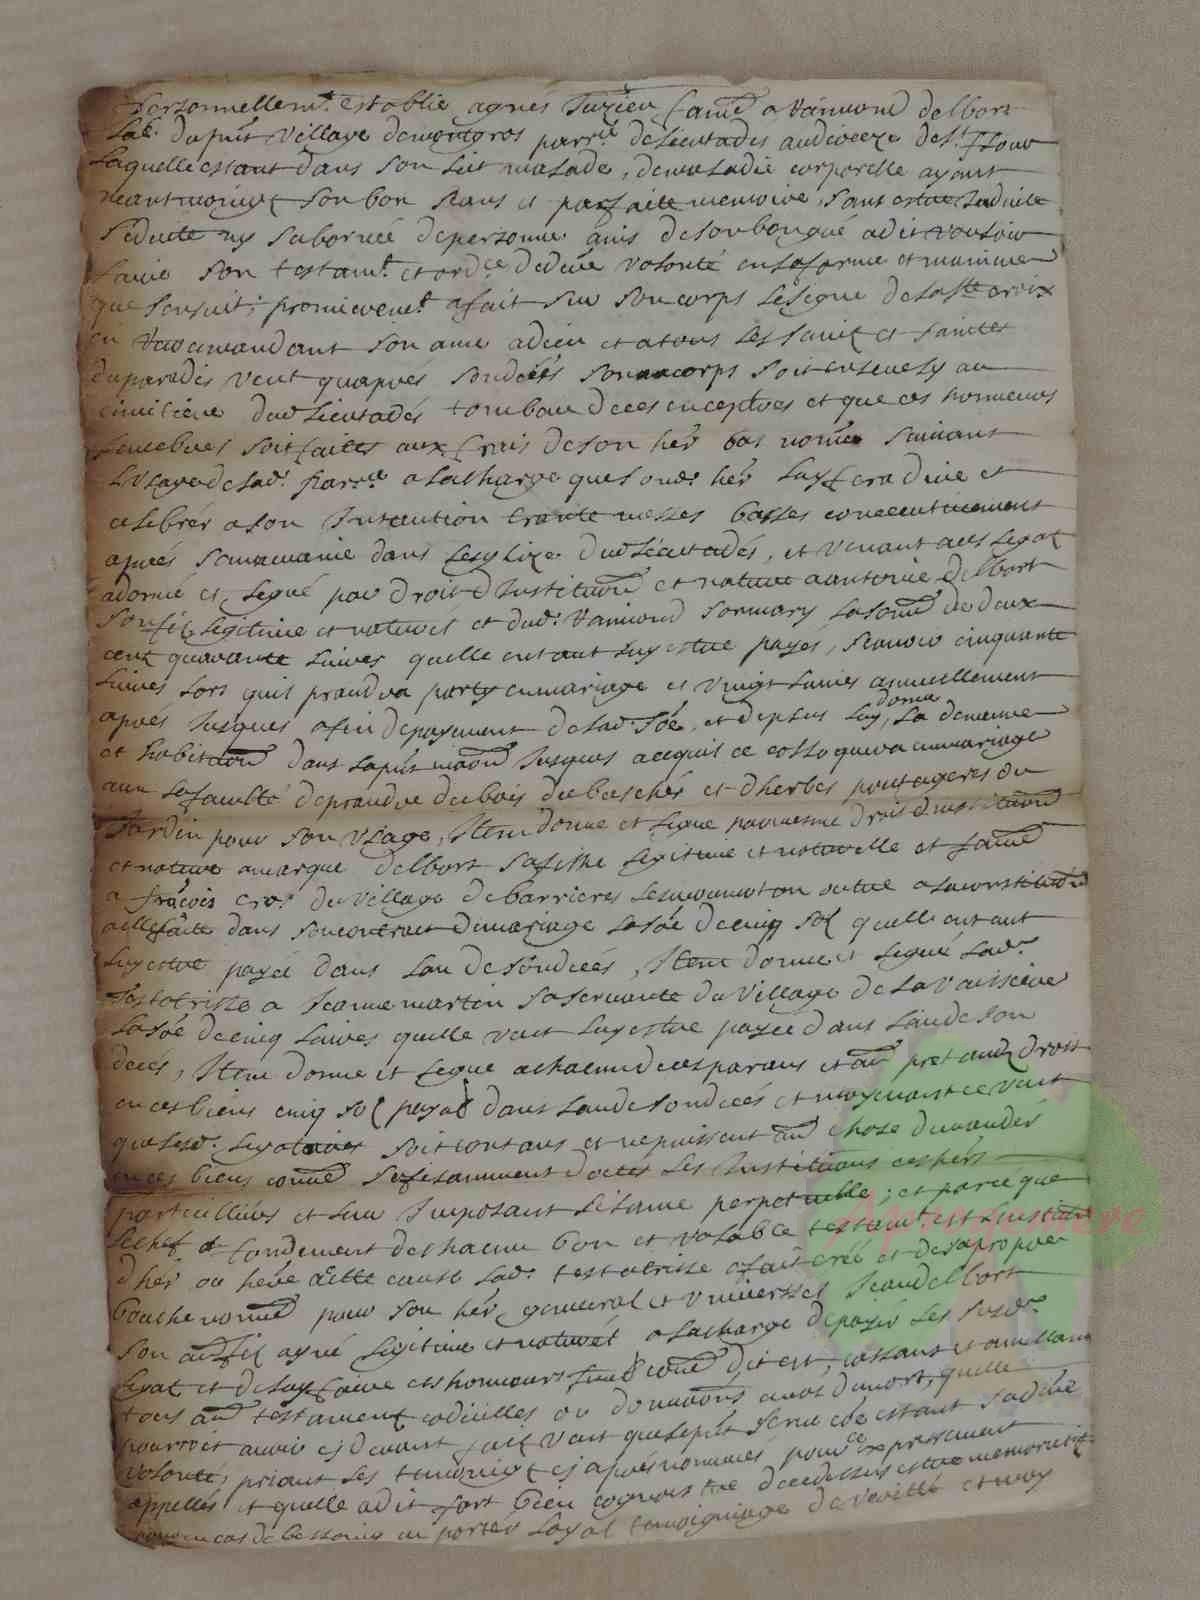 personnellemt. establie agnes Juzieu famē a Raimond delbort
lab. du pnt village demontgros parrlle de lieutades au dioceze de st. flour
laquelle estant dans son lit malade, de maladie corporelle ayant
neantmoingt son bon sans et parfaite memoire, sans estre Induite
seduite ny subornée de personne ains de son bon gué a dit vouloir
faire son testamt. et ordce de dere volonté en la forme et maniere
que sensuit; premieremt. a fait sur son corps le signe de la ste croix
en recomandant son ame a dieu et a tous les sainct et saintes
du paradis veut quapres son deces son corps soit ensevely au
cimitiere dud lieutadés tombau de ces encestres et que ces honneurs
funebres soit faites aux frais de son her bas nomé suivant
lusage de lad. parrlle a la charge que sond. her luy fera dire et
celebrer a son Intantion trante messes basses consecutivement
apres dans leglize dud lieutadés, et venant aus legat
a donné et legué par droit dInstitution et nature a antoine delbort
son fil legitime et naturel et dud. Raimond son mary la some de deux
cent quarante livres quelle entant luy estre payes, scavoir cinquante
livres lors quil prandra party en mariage et vingt livres annuellement
apres Jusques a fin de payement de lad. soe, et de plus luy donne la demeure
et habitaon dans la pnt maison Jusques a ce quil ce colloquera en mariage
avec la faculté de prandre du bois du buscher et dherbes poutageres du
Jardin pour son usage, Item donne et legue par mesme droit dinstitution
et nature a marque delbort sa fille legitime et naturelle et famē
a françois cros du village de barrieres outre la constitution
a elle faite dans son contract de mariage la soe de cinq sol quelle entant
luy estre payée dans lan de son deces, Item donne et legue lad.
testatrisse a Jeanne martin sa servante du village de la vaissiere
la soe de cinq livres quelle veut luy estre payée dans lan de son
deces, Item donne et legue a chacun de ces parans et au pretandt droit
en ces biens cinq sol payab dans lan de son deces et moyenant ce veut
que lesd. legataires soit contans et ne puissent aue chose demander
en ces biens comē les Instituans ces hers
particulliers et leur Imposant silance perpetuelle; et parce que
le chef et fondement de chacun bon et valable testamt. est linstituon
dher ou here a cette cause lad. testatrisse a fait créé et de sa propre
bouche nomé pour son her general et universel Jean delbort
son aud. fil ayné legitime et naturel a la charge de payer les susd.
legat et de luy faire ces honneurs funeb comē dit est, cassant et annullant
tous au testament codicilles ou donnaons a cause de mort, quelle
pourroit avoir cy devant fait veut que le pnt sa dere
volonté, priant les temoingt cy apres nommés pour ce expressement
appellés et quelle a dit fort bien cognoistre de ce dessus estre memoratif
pour en cas de bessoing en porter loyal temoigniage de verité et moy